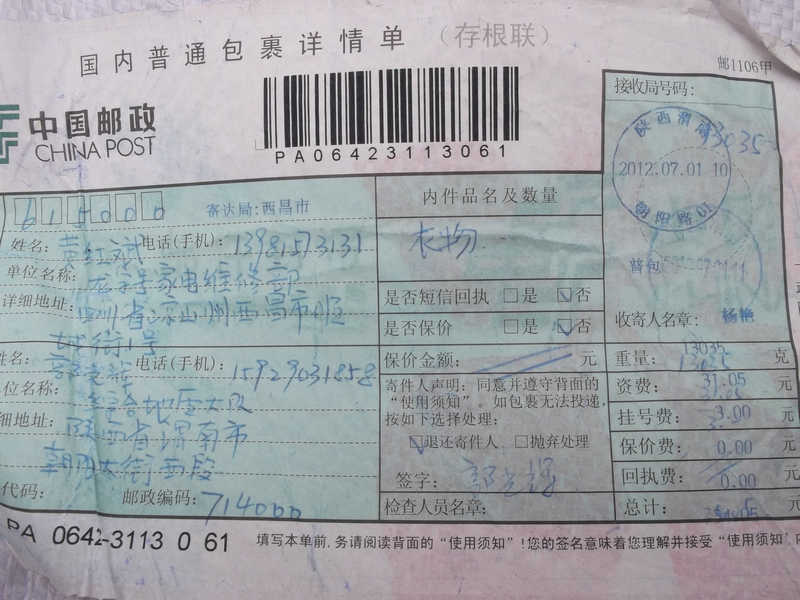 国内普通包裹详情单 (存根联)
邮1106甲
中国邮政
CHINA POST
PA06423113061
接收局号码:
陕西渭南
3035
2012.07.01 10
朝阳路01
615000
寄达局:西昌市
内件品名及数量
姓名: 黄红斌 电话(手机): 13981573131
衣物
单位名称: 家电维修部
详细地址: 四川省凉山州西昌市顺
城街1号
是否短信回执 □是 ☑否
普包
是否保价 □是 ☑否
收寄人名章: 杨艳
保价金额: 元
重量: 13035 克
姓名: 电话(手机): 15929031858
寄件人声明:同意并遵守背面的
“使用须知”。如包裹无法投递,
按如下选择处理:
资费: 31.05 元
单位名称: 地震大队
挂号费: 3.00 元
详细地址: 陕西省渭南市
朝阳大街西段
☑退还寄件人 □抛弃处理
保价费: 0.00 元
签字:
回执费: 0.00 元
代码: 邮政编码: 714000
检查人员名章:
总计: 元
PA 0642-3113 0 61
填写本单前,务请阅读背面的“使用须知”!您的签名意味着您理解并接受“使用须知”内